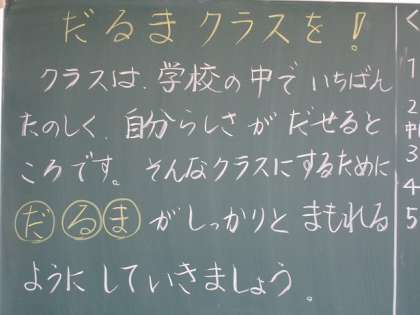 だるまクラスを！
クラスは、学校の中でいちばん
たのしく、自分らしさがだせると
ころです。そんなクラスにするために
だるまがしっかりとまもれる
ようにしていきましょう。
く
1
2
3
4
5